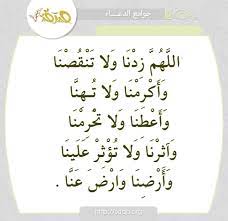 جوامع الدعاء
اللَّهُمَّ زِدْنَا وَلَا تَنْقُصْنَا
وَأَكْرِمْنَا وَلَا تُهِنَّا
وَأَعْطِنَا وَلَا تَحْرِمْنَا
وَآثِرْنَا وَلَا تُؤْثِرْ عَلَيْنَا
وَأَرْضِنَا وَارْضَ عَنَّا .